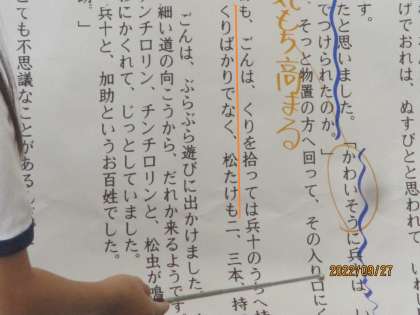 げておれは、ぬすびとと思われて、い
す。
たと思いました。「かわいそうに兵十は、い
でつけられたのか。」
、そっと物置の方へ回って、その入り口にく
気もち高まる
も、ごんは、くりを拾っては兵十のうちへ持
くりばかりでなく、松たけも二、三本、持
ごんは、ぶらぶら遊びに出かけました。
細い道の向こうから、だれか来るようです。
チンチロリン、チンチロリンと、松虫が鳴
にかくれて、じっとしていました。
兵十と、加助というお百姓でした。
とても不思議なことがある
2022/09/27